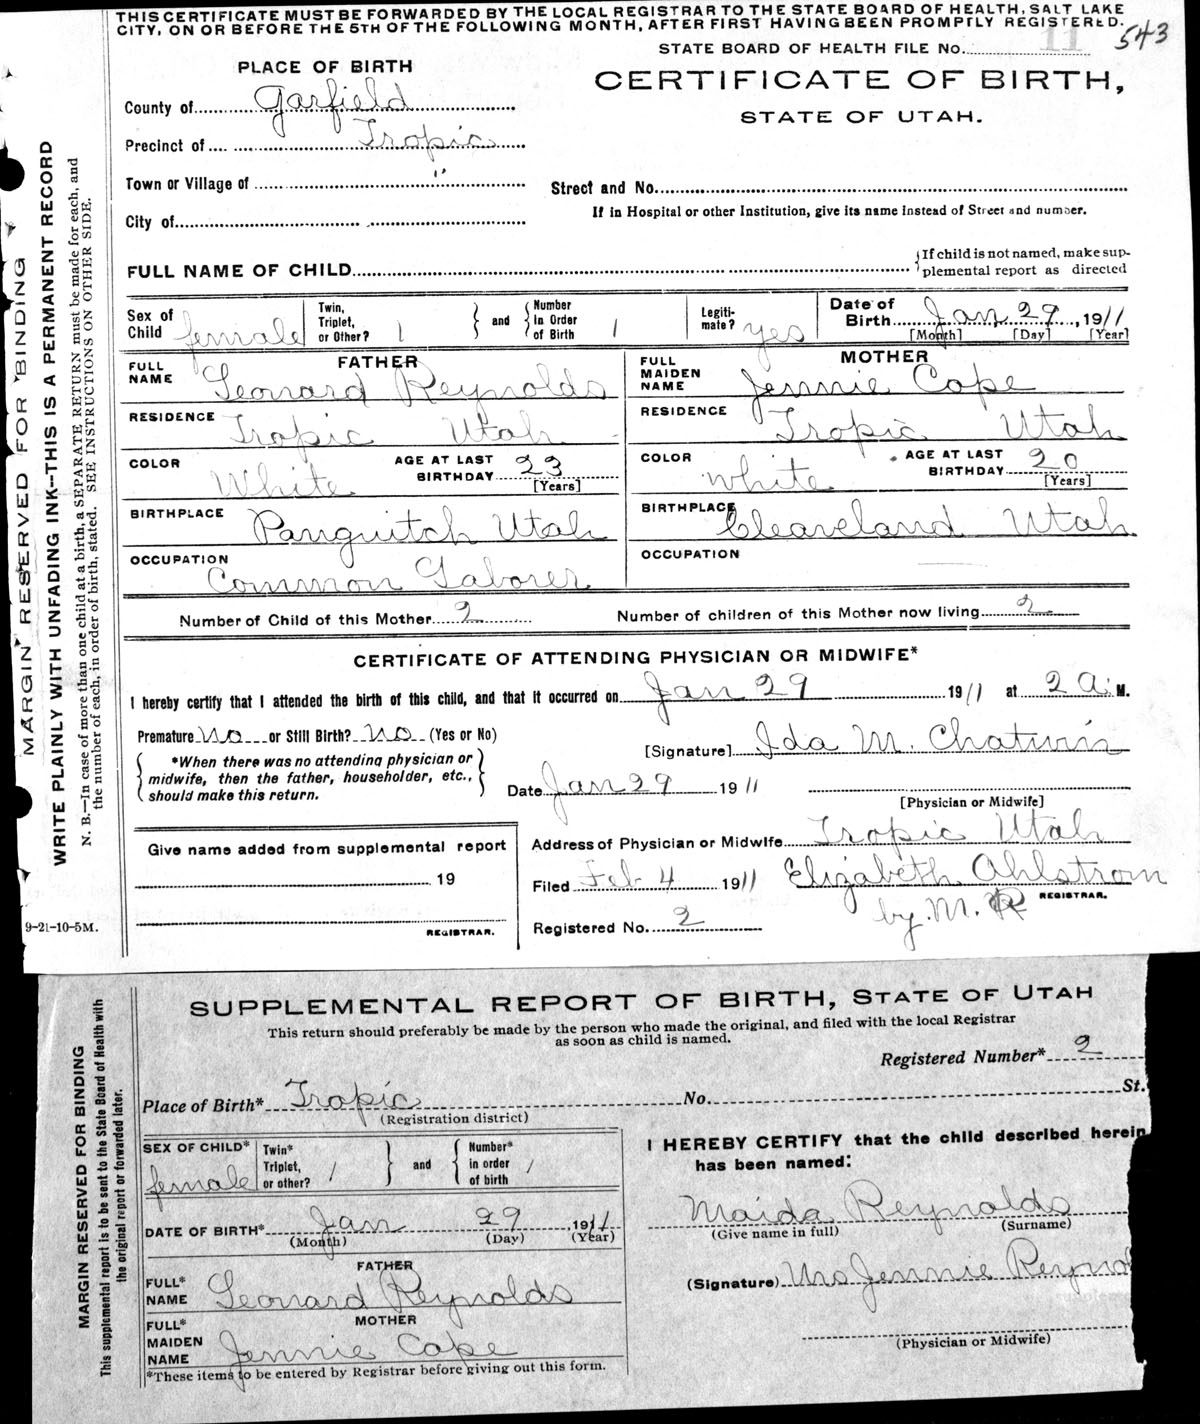 THIS CERTIFICATE MUST BE FORWARDED BY THE LOCAL REGISTRAR TO THE STATE BOARD OF HEALTH, SALT LAKE
CITY, ON OR BEFORE THE 5TH OF THE FOLLOWING MONTH, AFTER FIRST HAVING BEEN PROMPTLY REGISTERED.
543
STATE BOARD OF HEALTH FILE No. 11
PLACE OF BIRTH
CERTIFICATE OF BIRTH,
STATE OF UTAH.
County of Garfield
Precinct of Tropic
Town or Village of "
Street and No.
City of
If in Hospital or other Institution, give its name instead of Street and number.
FULL NAME OF CHILD {If child is not named, make sup-
plemental report as directed
Sex of Child female
Twin, Triplet, or Other? 1 } and { Number In Order of Birth 1
Legiti-mate? yes
Date of Birth Jan 29, 1911
[Month] [Day] [Year]
FATHER
FULL NAME Leonard Reynolds
MOTHER
FULL MAIDEN NAME Jennie Cope
RESIDENCE Tropic Utah
RESIDENCE Tropic Utah
COLOR White AGE AT LAST BIRTHDAY 23 [Years]
COLOR White AGE AT LAST BIRTHDAY 20 [Years]
BIRTHPLACE Panguitch Utah
BIRTHPLACE Cleaveland Utah
OCCUPATION Common Laborer
OCCUPATION
Number of Child of this Mother 2 Number of children of this Mother now living 2
CERTIFICATE OF ATTENDING PHYSICIAN OR MIDWIFE*
I hereby certify that I attended the birth of this child, and that it occurred on Jan 29 1911 at 2 A. M.
Premature No or Still Birth? No (Yes or No)
[Signature] Ida M. Chatwin
{*When there was no attending physician or
midwife, then the father, householder, etc.,
should make this return.}
Date Jan 29 1911
[Physician or Midwife]
Address of Physician or Midwife Tropic Utah
Give name added from supplemental report
19
REGISTRAR.
Filed Feb 4 1911 Elizabeth Ahlstrom
REGISTRAR.
by M. R
Registered No. 2
9-21-10-5M.
MARGIN RESERVED FOR BINDING
WRITE PLAINLY WITH UNFADING INK--THIS IS A PERMANENT RECORD
N. B.—In case of more than one child at a birth, a SEPARATE RETURN must be made for each, and
the number of each, in order of birth, stated. SEE INSTRUCTIONS ON OTHER SIDE.
SUPPLEMENTAL REPORT OF BIRTH, STATE OF UTAH
This return should preferably be made by the person who made the original, and filed with the local Registrar
as soon as child is named.
Registered Number* 2
Place of Birth* Tropic No. St.
(Registration district)
SEX OF CHILD* female
Twin* Triplet, or other? 1 } and { Number* in order of birth 1
DATE OF BIRTH* Jan 29, 1911
(Month) (Day) (Year)
FATHER
FULL* NAME Leonard Reynolds
MOTHER
FULL* MAIDEN NAME Jennie Cope
*These items to be entered by Registrar before giving out this form.
I HEREBY CERTIFY that the child described herein
has been named:
Maida Reynolds
(Give name in full) (Surname)
(Signature) Mrs Jennie Reynol
(Physician or Midwife)
MARGIN RESERVED FOR BINDING
This supplemental report is to be sent to the State Board of Health with
the original report or forwarded later.